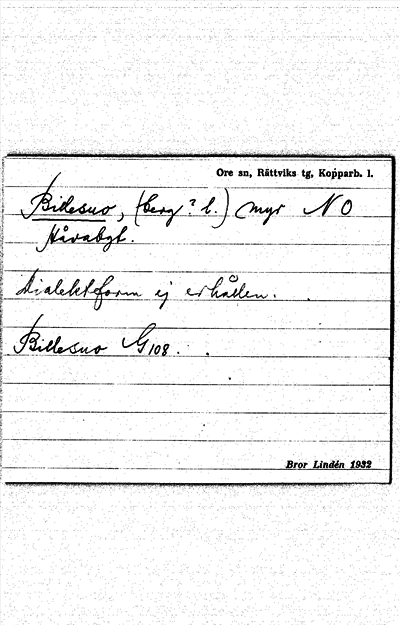 Ore sn, Rättviks tg, Kopparb. l.
Bidesuo, (berg? l.) myr NO
Håvabgt.
Dialektform ej erhållen.
Billesuo G108.
Bror Lindén 1932